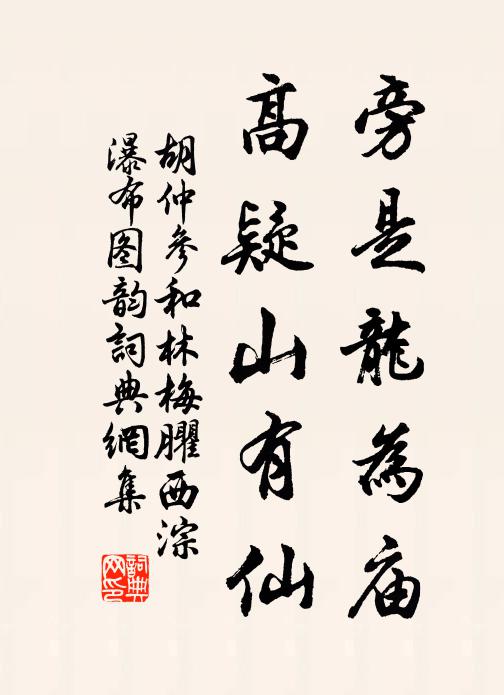 旁是龍為庙
高疑山有仙
胡仲參和林梅臞西淙
瀑布图韵詞典網集
詞典网印